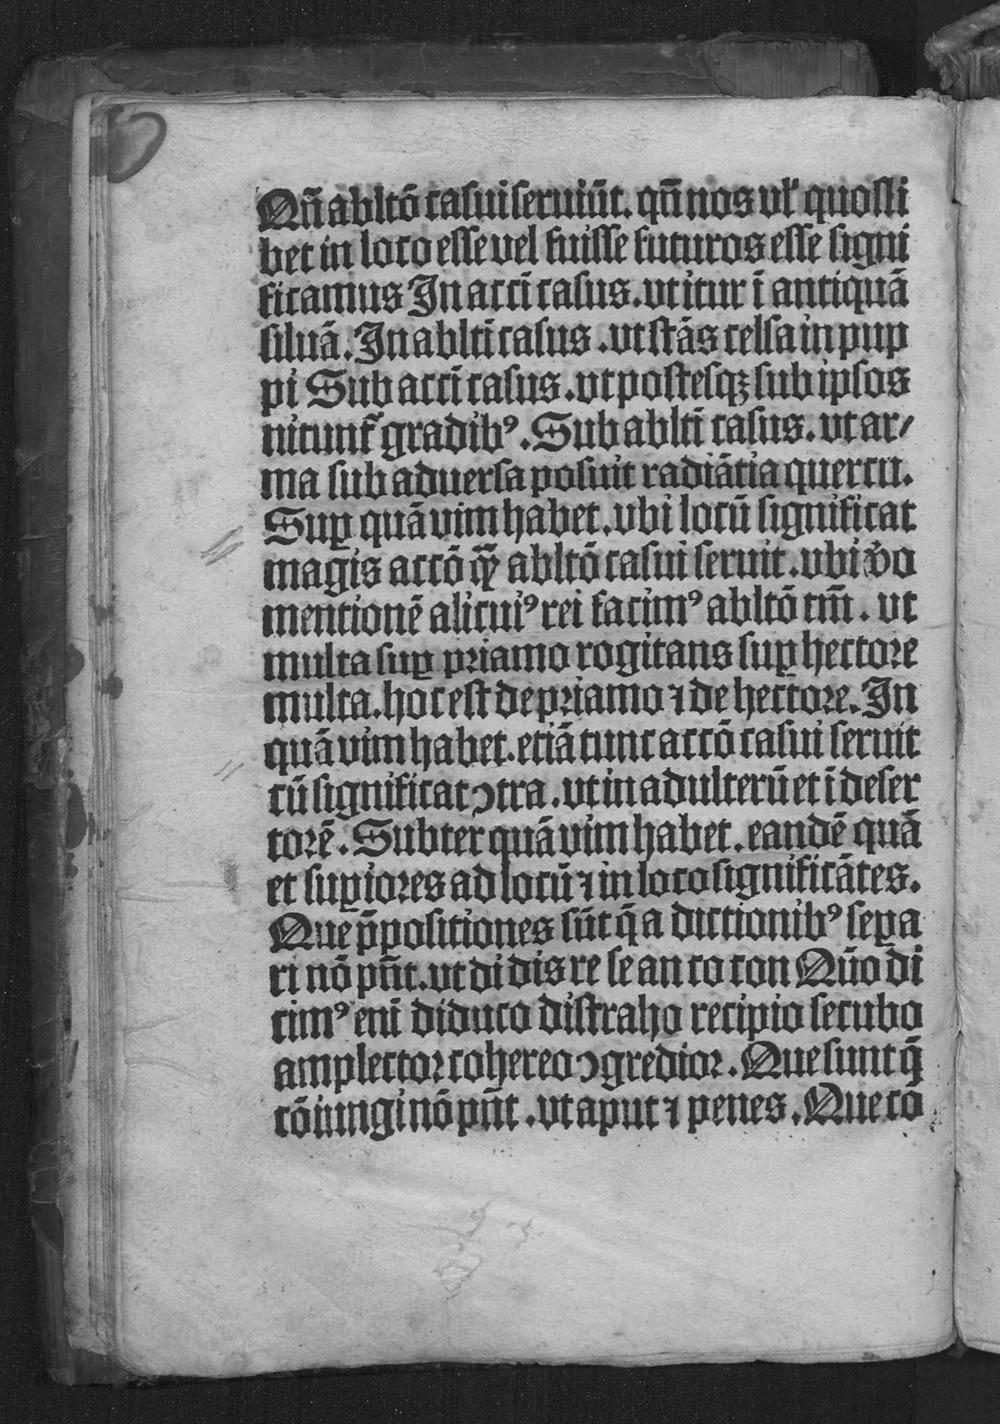 Qñ abltō casui seruiūt. qñ nos vl' quosli
bet in loco esse vel fuisse futuros esse signi
ficamus In acci casus. vt itur ī antiquā
siluā. In ablti casus . vt stās celsa in pup
pi Sub acci casus. vt postesqꝫ sub ipsos
nitunt᷑ gradibꝰ . Sub ablti casus. vt ar⸗
ma sub aduersa posuit radiātia quercu.
Suꝑ quā vim habet. vbi locū significat
magis accō qꝫ̄ abltō casui seruit. vbi v̓o
mentionē alicuiꝰ rei facimꝰ abltō tm̄ . vt
multa suꝑ priamo rogitans suꝑ hectore
multa. hoc est de priamo ⁊ de hectore. In
quā vim habet. etiā tunc accō casui seruit
cū significat ꝯtra . vt in adulterū et ī deser
torē . Subter quā vim habet . eandē quā
et suꝑiores ad locū ⁊ in loco significātes.
Que p̄positiones sūt q̄ a dictionibꝰ seꝑa
ri nō pñt. vt di dis re se an co con Quō di
cimꝰ eni diduco distraho recipio secubo
amplector cohereo ꝯgredior . Que sunt q̄
cōiungi nō pñt . vt aput ⁊ penes . Que cō